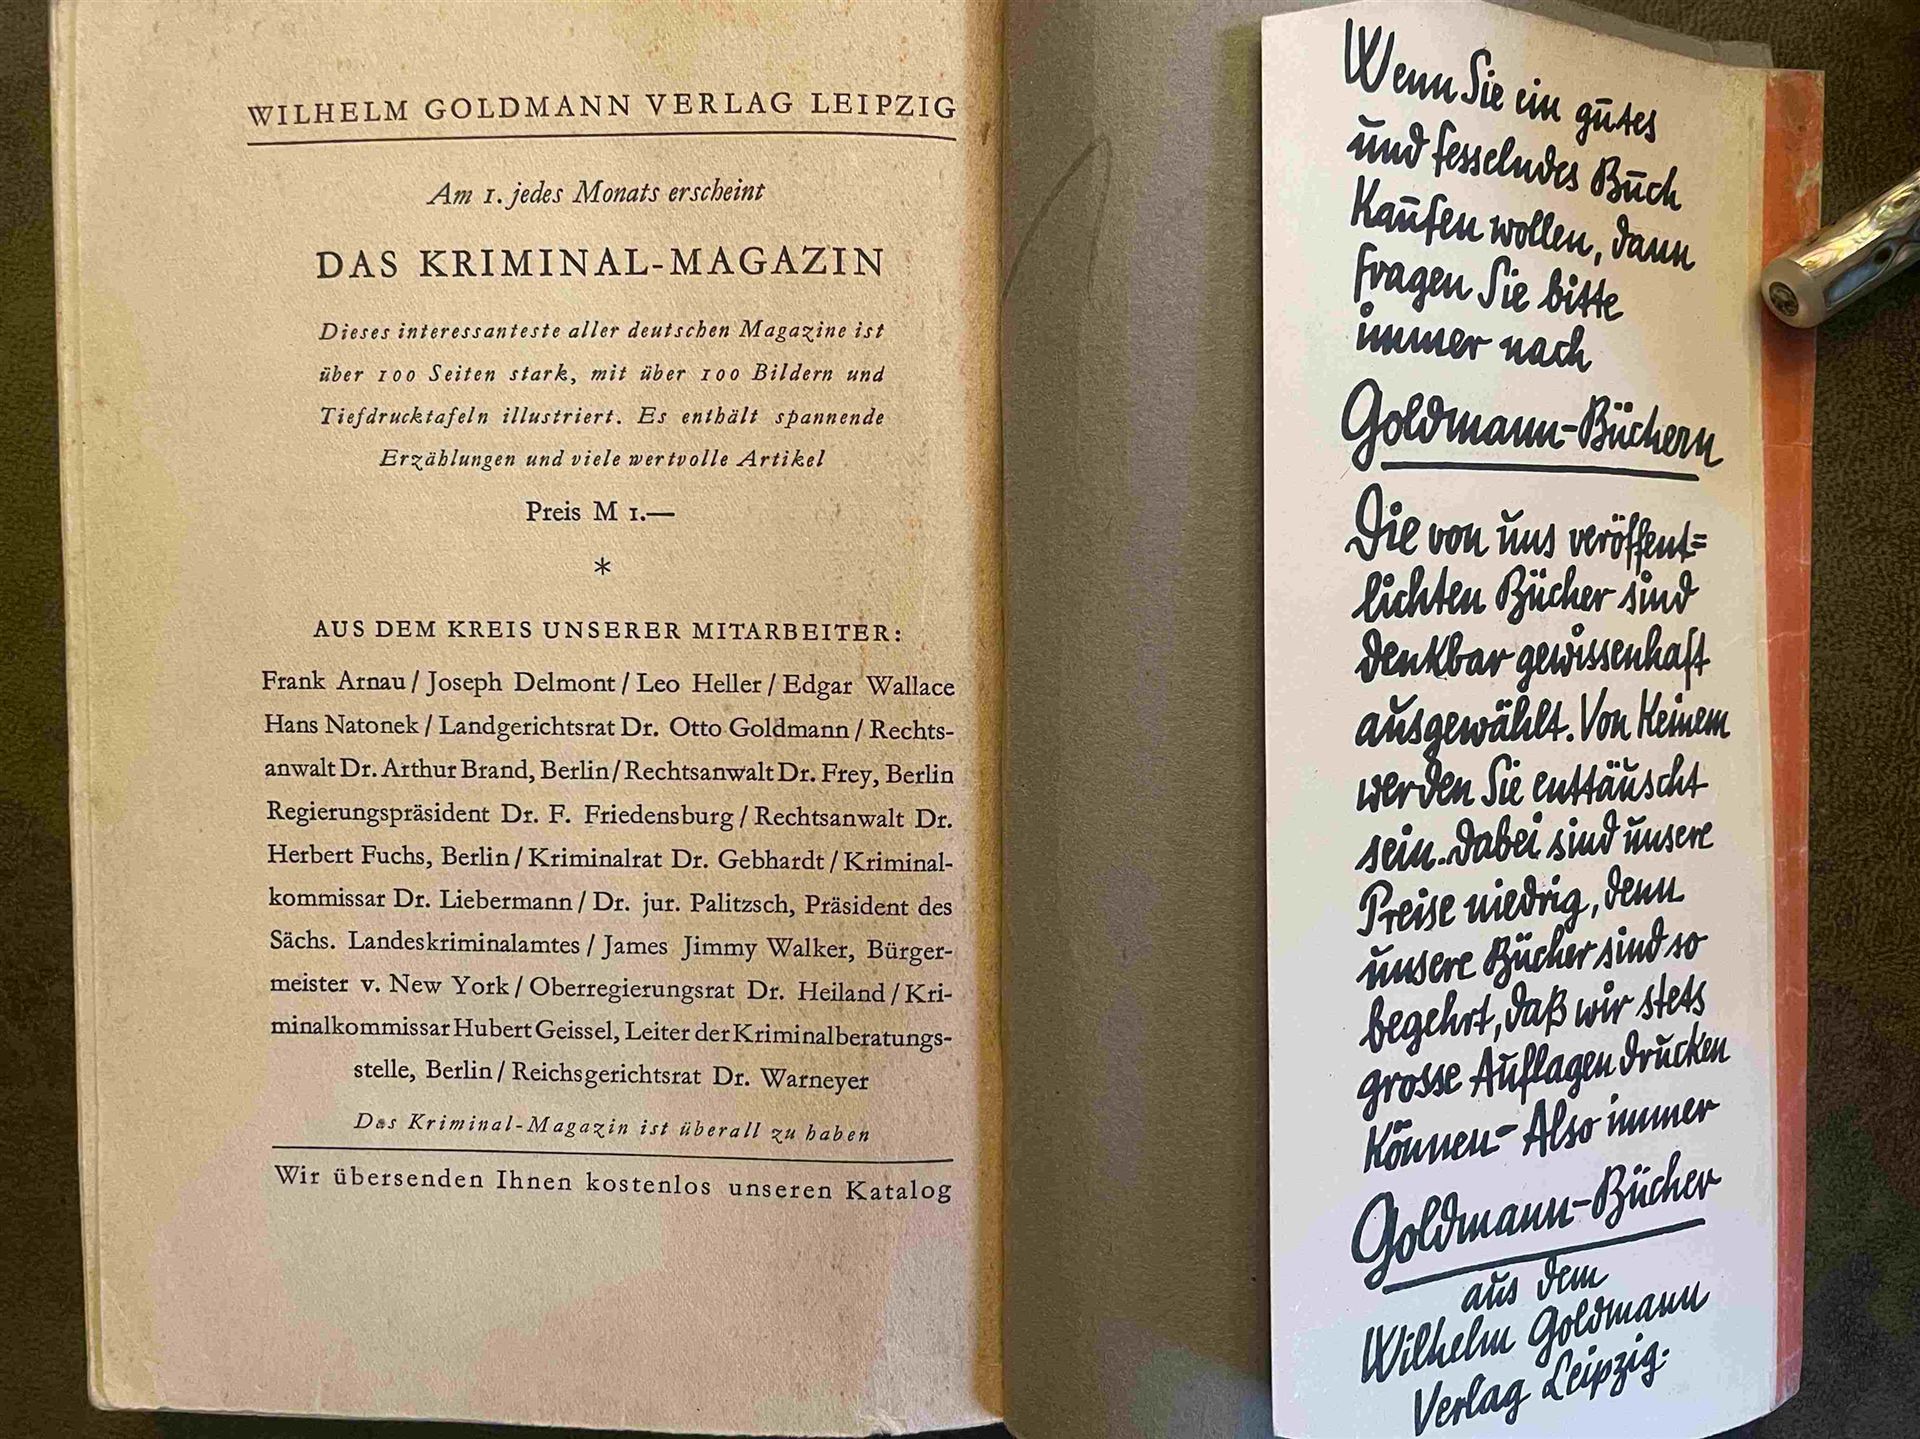 WILHELM GOLDMANN VERLAG LEIPZIG
Am 1. jedes Monats erscheint
DAS KRIMINAL-MAGAZIN
Dieses interessanteste aller deutschen Magazine ist
über 100 Seiten stark, mit über 100 Bildern und
Tiefdrucktafeln illustriert. Es enthält spannende
Erzählungen und viele wertvolle Artikel
Preis M 1.—
*
AUS DEM KREIS UNSERER MITARBEITER:
Frank Arnau / Joseph Delmont / Leo Heller / Edgar Wallace
Hans Natonek / Landgerichtsrat Dr. Otto Goldmann / Rechts-
anwalt Dr. Arthur Brand, Berlin / Rechtsanwalt Dr. Frey, Berlin
Regierungspräsident Dr. F. Friedensburg / Rechtsanwalt Dr.
Herbert Fuchs, Berlin / Kriminalrat Dr. Gebhardt / Kriminal-
kommissar Dr. Liebermann / Dr. jur. Palitzsch, Präsident des
Sächs. Landeskriminalamtes / James Jimmy Walker, Bürger-
meister v. New York / Oberregierungsrat Dr. Heiland / Kri-
minalkommissar Hubert Geissel, Leiter der Kriminalberatungs-
stelle, Berlin / Reichsgerichtsrat Dr. Warneyer
Das Kriminal-Magazin ist überall zu haben
Wir übersenden Ihnen kostenlos unseren Katalog
Wenn Sie ein gutes
und fesselndes Buch
Kaufen wollen, dann
fragen Sie bitte
immer nach
Goldmann-Büchern
Die von uns veröffent=
lichten Bücher sind
denkbar gewissenhaft
ausgewählt. Von Keinem
werden Sie enttäuscht
sein. Dabei sind unsere
Preise niedrig, denn
unsere Bücher sind so
begehrt, daß wir stets
grosse Auflagen drucken
Können - Also immer
Goldmann-Bücher
aus dem
Wilhelm Goldmann
Verlag Leipzig.